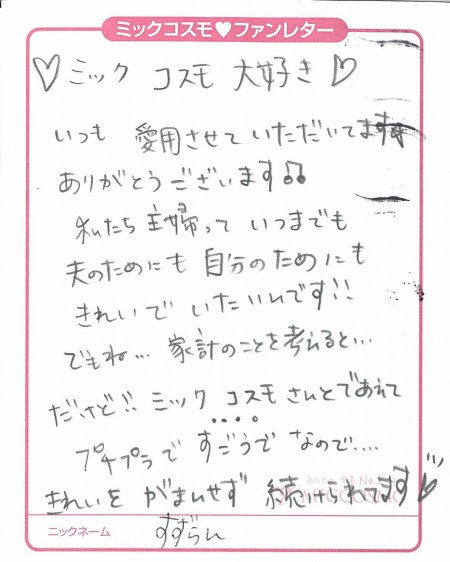 ミックコスモ♥ファンレター
♡ミック コスモ 大好き♡
いつも 愛用させて いただいてます
ありがとうございます♫
私たち主婦って いつまでも
夫のためにも 自分のためにも
きれいで いたいんです!!
でもね… 家計のことを考えると…
だけど!! ミック コスモさんとであえて
プチプラで すごうで なので....
きれいを がまんせず 続けられてます♡
ニックネーム すずらん